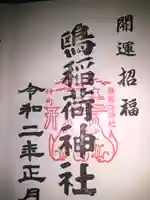 開運招福
鴨稲荷神社
令和二年正月